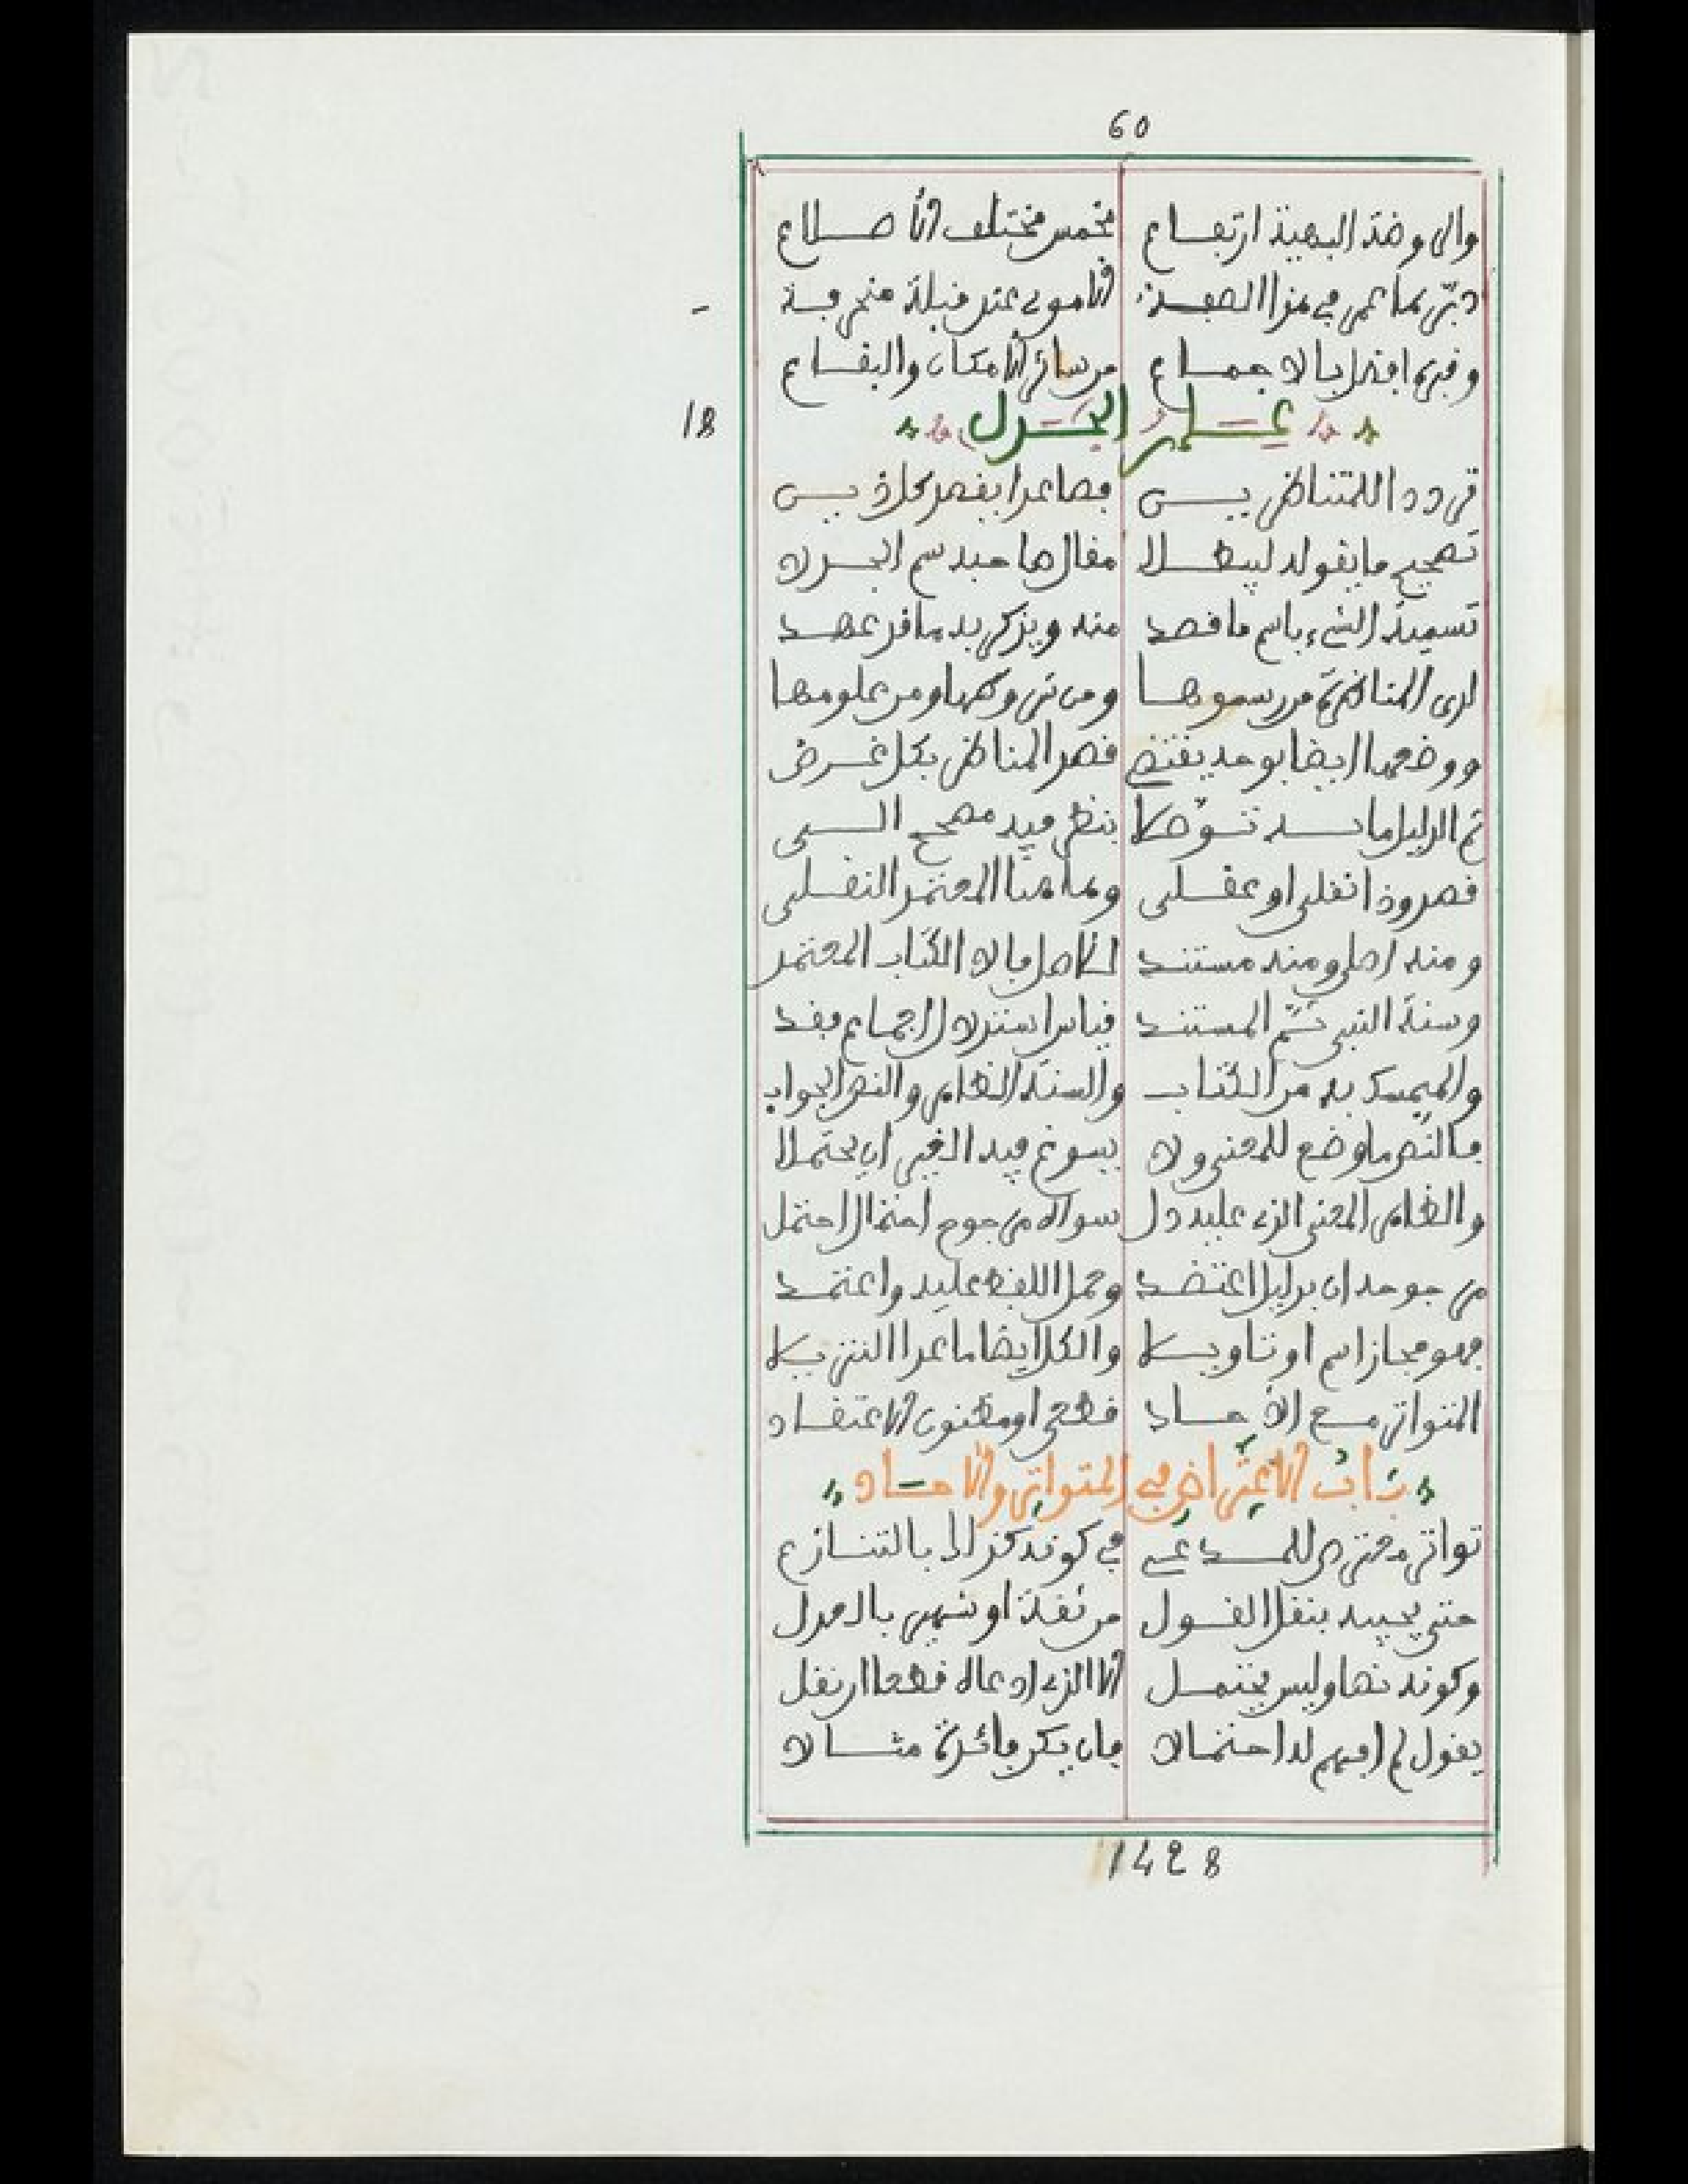 60
والروضة البهية ارتفاع مخمس مختلف الأضلاع
دبر بها عمر في هذا الصفة الاموي عند قبلة منحرفة
وقبره افضل بالاجماع من سائر الأمكان والبقاع
18
علم الجدل
تردد المتناظريــن فصاعدا بقصد كل ذيــن
تصحيح ما يقوله ليبطلا مقال صاحبه سم الجدلا
تسمية الشيء باسم ما قصد منه ويذكر به ما قد عهد
لدى المناظرة من رسومها ومن شروطها ومن علومها
ووضعها ايضا بوجه يقتضي قصد المناظر بكل غرض
ثم الدليل ما به توصلا ينظر فيه مصحح الــى
قصد وذا نقلي او عقلي وهاهنا المعتمد النقلي
ومنه اصل ومنه مستند الاصل ما لا الكتاب المعتمد
وسنة النبي ثم المستند قياس استدلال اجماع فقد
والمتمسك به من الكتاب والسنة الظاهر والنص الجواب
فالنص ما وضع للمعنى ولا يسوغ فيه الغير ان يحتملا
والظاهر المعنى الذي عليه دل سواه مرجوح احتمال احتمل
مرجوحه ان بدليل اعتضد وحمل اللفظ عليه واعتمد
فهو مجاز اسم او تاويلا والكل ايضا ما عدا التنزيلا
المتواتر مع الآحاد قطعي او مظنون الاعتقاد
باب الاعتراض في المتواتر والاحاد
تواتر معترض للمدعي في كونه كذا لا بالتنازع
حتى يجيبه بنقل القول من ثقة او شهير بالعدل
وكونه نصا وليس يحتمل الا الذي ادعاه قطعا ان نقل
يقول لم افهم له احتمالا فان يكن فائدة مثالا
1428